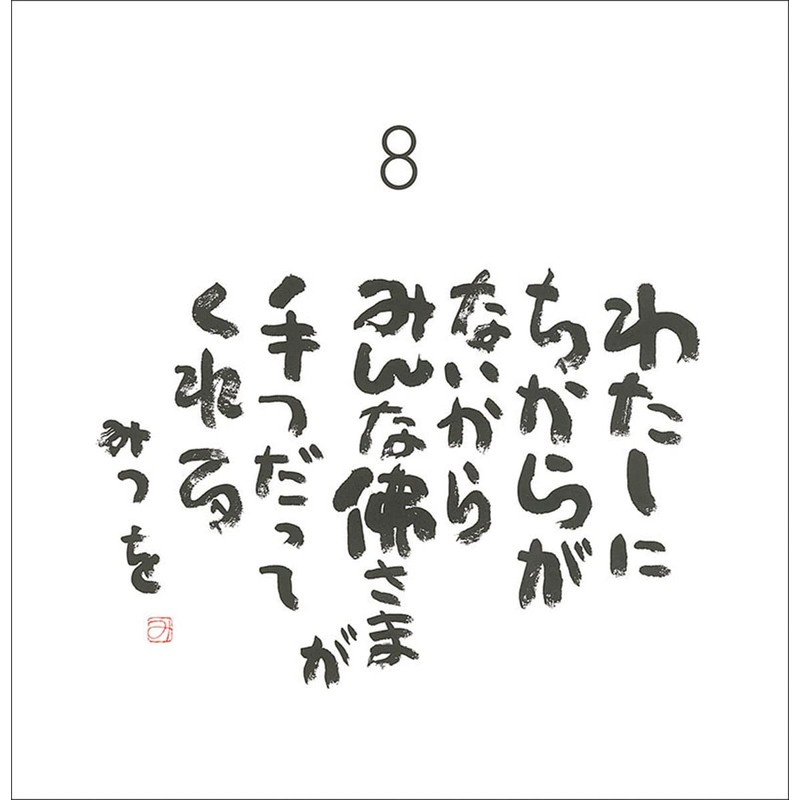 8
わたしに
ちからが
ないから
みんな佛さま
が
手つだって
くれる
みつを
み